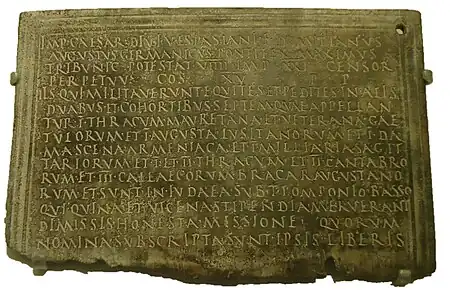 IMP CAESAR DIVI VESPASIANI F DOMITIANVS
AVGVSTVS GERMANICVS PONTIFEX MAXIMVS
TRIBVNIC POTESTAT IMP CENSOR
PERPETVVS COS P P
IIS QVI MILITAVERVNT EQVITES ET PEDITES IN ALIS
DVABVS ET COHORTIBVS SEPTEM QVAE APPELLAN
TVR I THRACVM MAVRETANA ET VETERANA GAE
TVLORVM ET I AVGVSTA LVSITANORVM ET I DA
MASCENA ARMENIACA ET MILLIARIA SAGIT
TARIORVM ET I ET II THRACVM ET II CANTABRO
RVM ET III CALLAECORVM BRACARAVGVSTANO
RVM ET SVNT IN IVDAEA SVB T POMPONIO BASSO
QVI QVINA ET VICENA STIPENDIA MERVERANT
DIMISSIS HONESTA MISSIONE QVORVM
NOMINA SVBSCRIPTA SVNT IPSIS LIBERIS